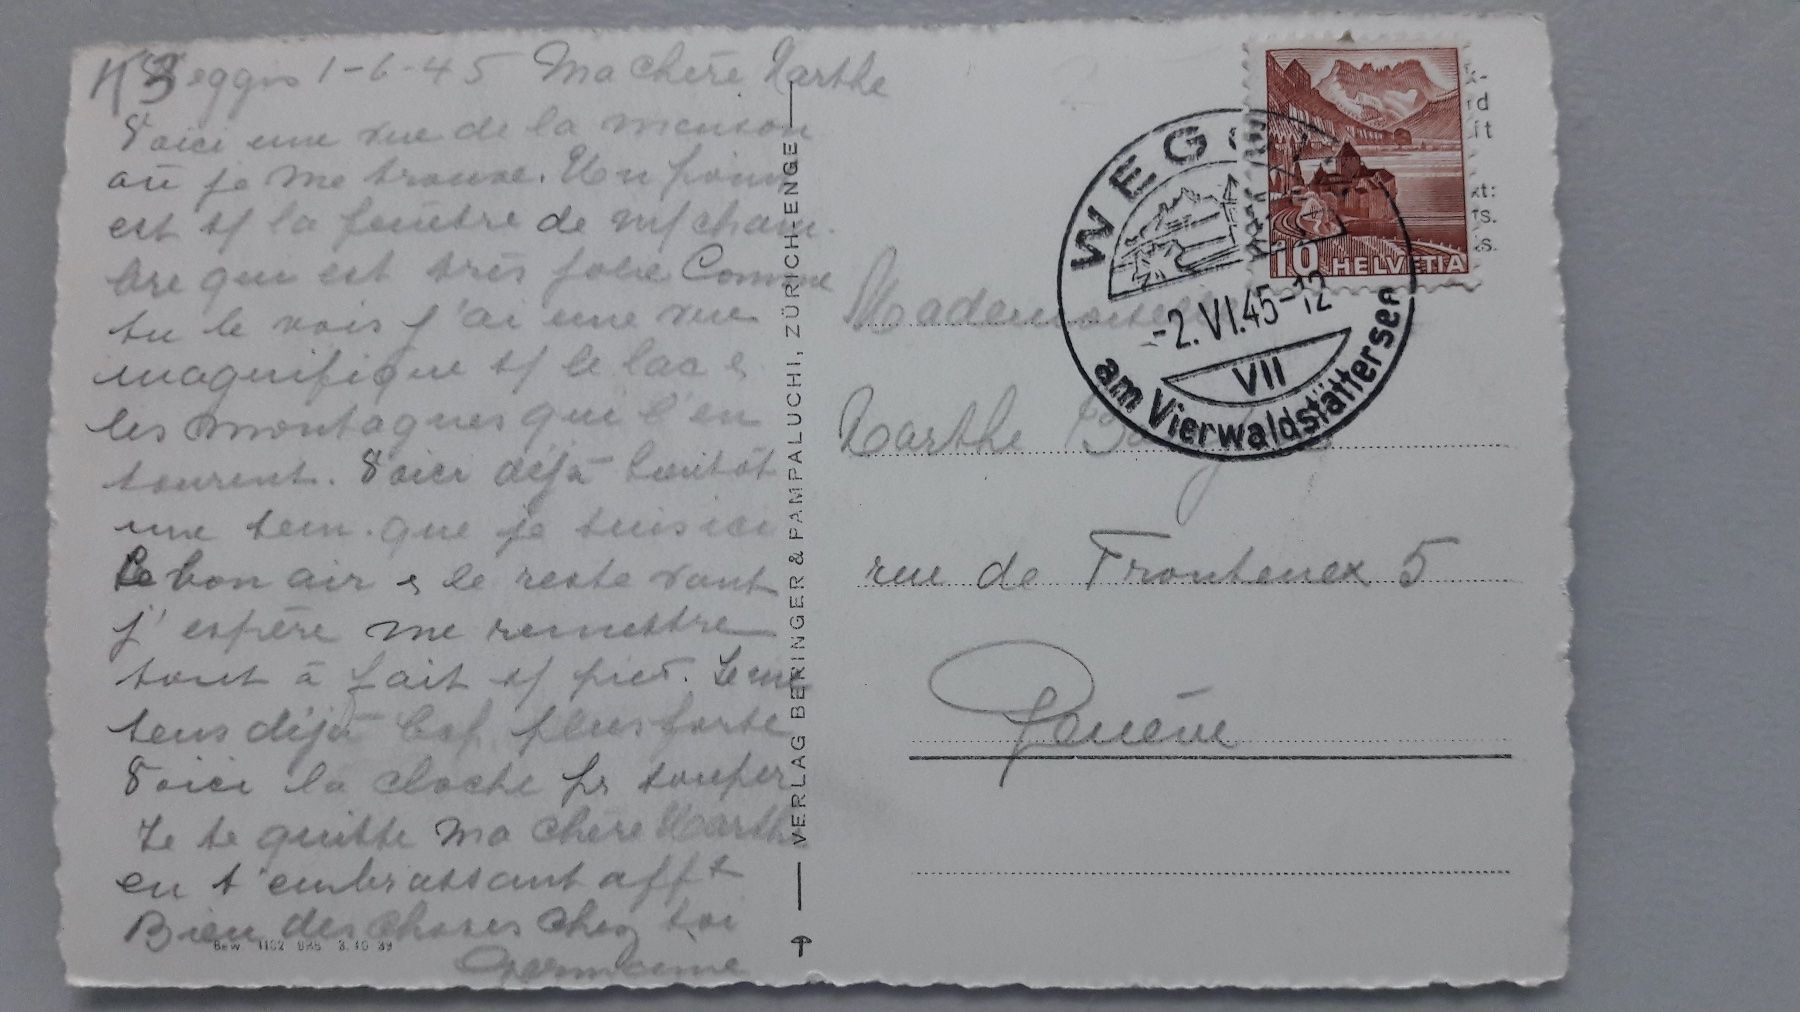 Weggis 1-6-45 Ma chère Marthe
Voici une vue de la maison
où je me trouve. Un point
est s/ la fenêtre de m/ cham-
bre qui est très jolie Comme
tu le vois j'ai une vue
magnifique s/ le lac &
les montagnes qui l'en
tourent. Voici déjà bientôt
une sem. que je suis ici
Le bon air & le reste vont
j'espère me remettre
tout à fait s/ pied. Je me
sens déjà bcp plus forte
Voici la cloche pr souper
Je te quitte ma chère Marthe
en t'embrassant afft
Bien des choses chez toi
Germaine
Bew. 1102 BRB 3.10.39
VERLAG BERINGER & PAMPALUCHI, ZÜRICH-ENGE
10 HELVETIA
WEGGIS
-2.VI.45-12
VII
am Vierwaldstättersee
k-
rd
it
xt:
rs.
s.
Mademoiselle
Marthe
rue de Frontenex 5
Genève